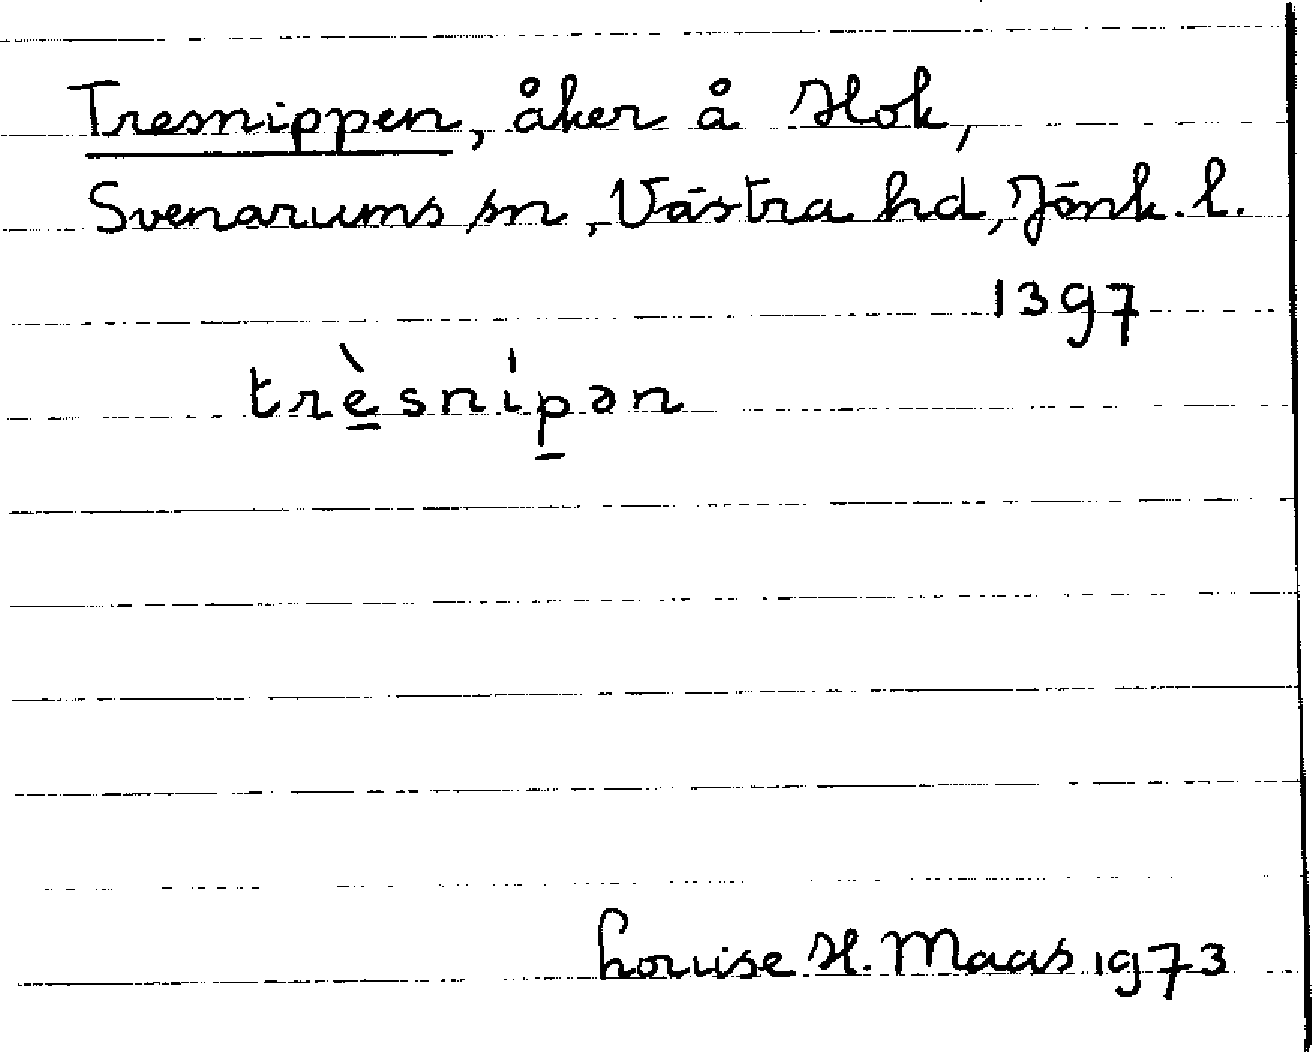 Tresnippen, åker å Hok,
Svenarums sn, Västra hd, Jönk. l.
1397
trè̱sni̍p̱ən
Louise H. Maas 1973